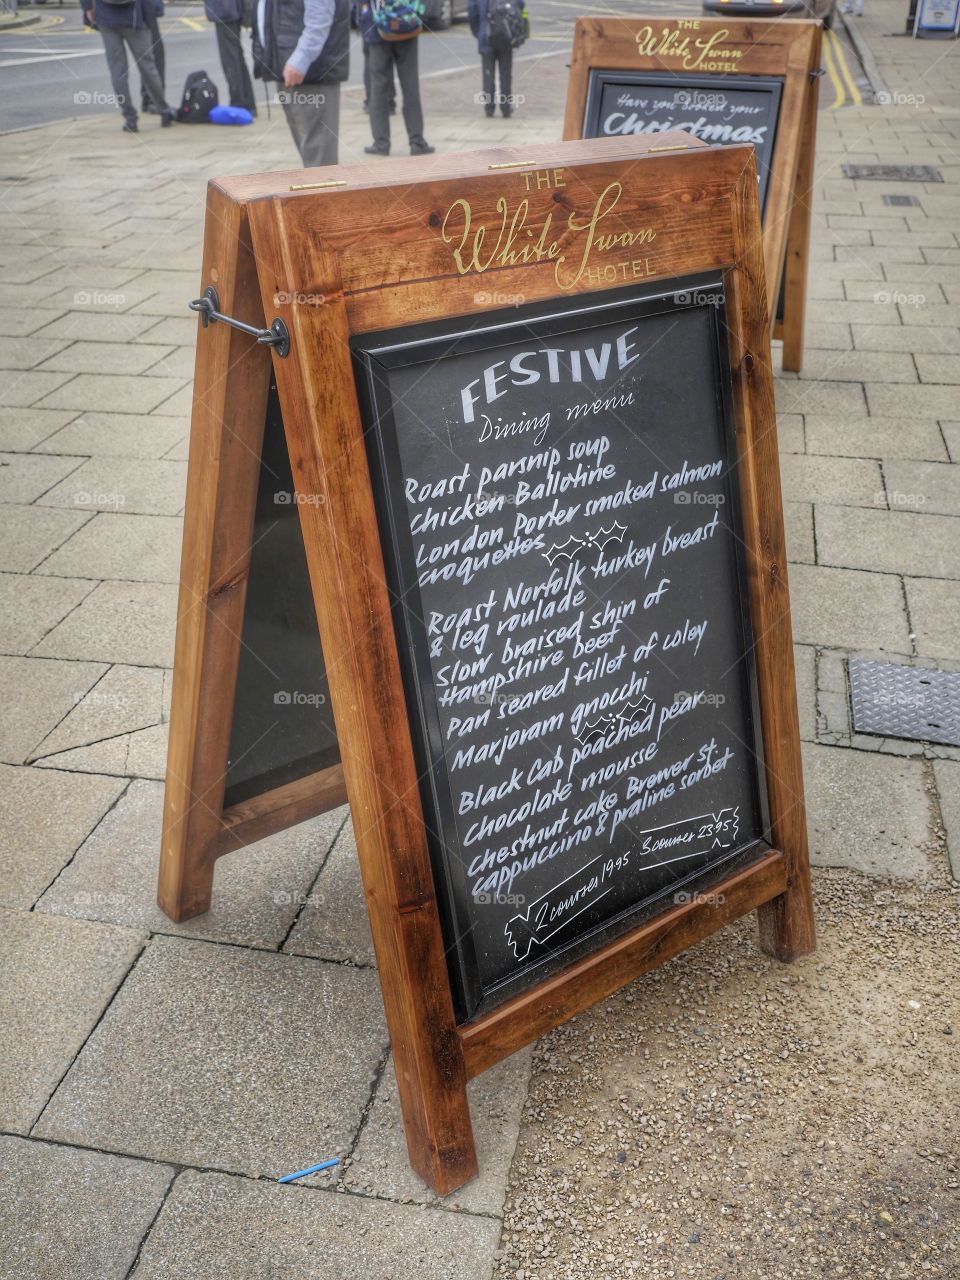 THE
White Swan
HOTEL
Have you booked your
Christmas
THE
White Swan
HOTEL
FESTIVE
Dining menu
Roast parsnip soup
Chicken Ballotine
London Porter smoked salmon
croquettes
Roast Norfolk turkey breast
& leg roulade
Slow braised shin of
Hampshire beef
Pan seared fillet of coley
Marjoram gnocchi
Black Cab poached pear
Chocolate mousse
Chestnut cake Brewer st.
cappuccino & praline sorbet
2 courses 19.95
3 courses 23.95